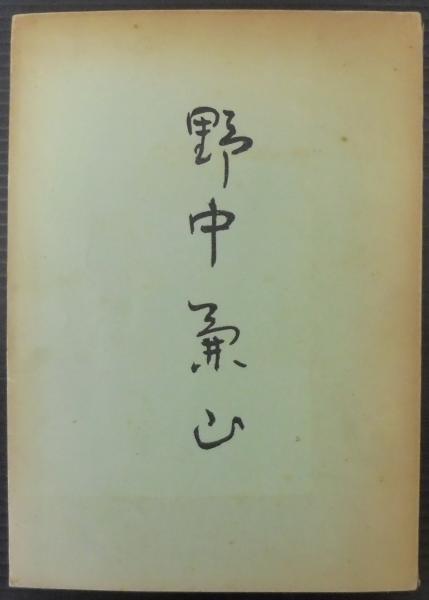 野中兼山